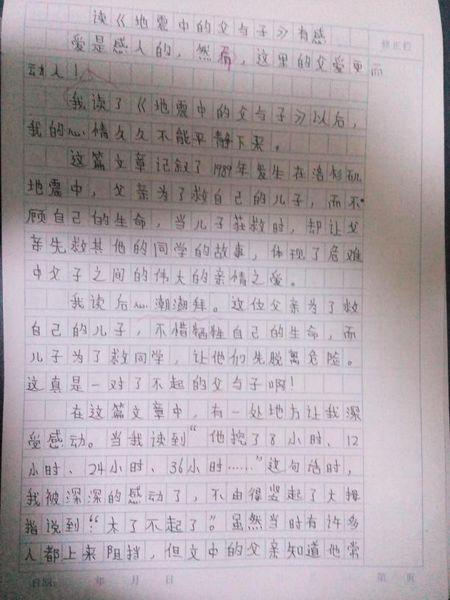 读《地震中的父与子》有感
爱是感人的,然而,这里的父爱更而
动人!
我读了《地震中的父与子》以后,
我的心情久久不能平静下来。
这篇文章记叙了1989年发生在洛杉矶
地震中,父亲为了救自己的儿子,而不
顾自己的生命,当儿子获救时,却让父
亲先救其他的同学的故事,体现了危难
中父子之间的伟大的亲情之爱。
我读后心潮潮拜。这位父亲为了救
自己的儿子,不惜牺牲自己的生命,而
儿子为了救同学,让他们先脱离危险。
这真是一对了不起的父与子啊!
在这篇文章中,有一处地方让我深
受感动。当我读到“他挖了8小时、12
小时、24小时、36小时……”这句话时,
我被深深的感动了,不由得竖起了大拇
指说到“太了不起了”。虽然当时有许多
人都上来阻挡,但文中的父亲知道他常
年 月 日 第 页